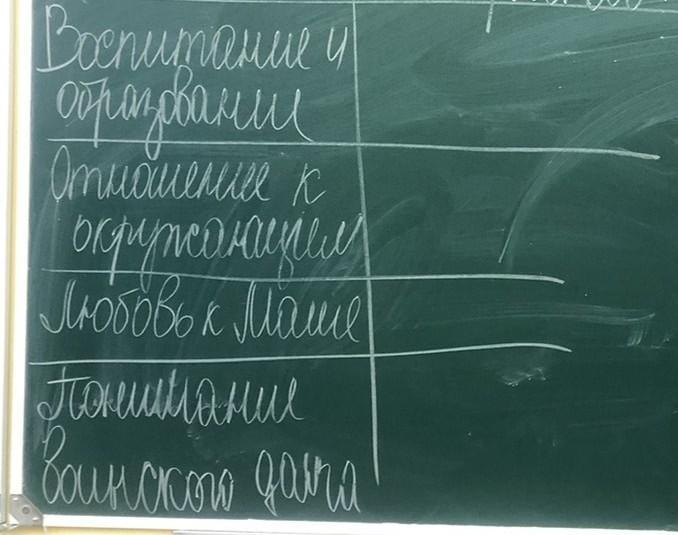 Воспитание и
образование
Отношение к
окружающим
Любовь к Маше
Понимание
Воинского долга